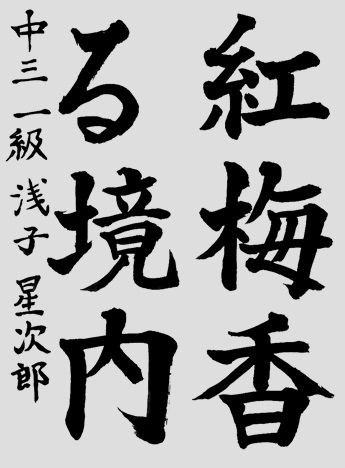 紅梅香
る境内
中三 一級 浅子 星次郎